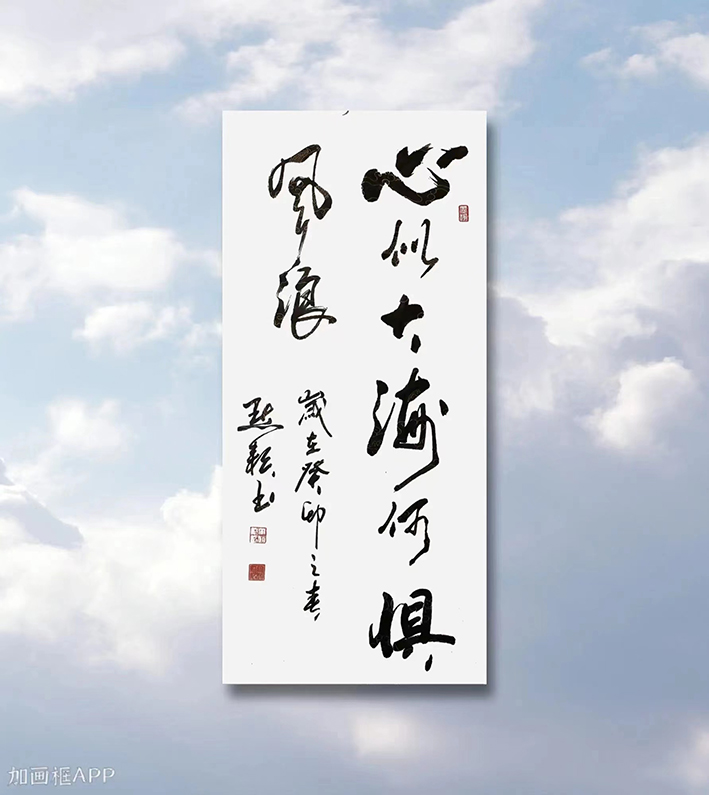 心似大海何惧
风浪
岁在癸卯之春
默耘书
加画框APP